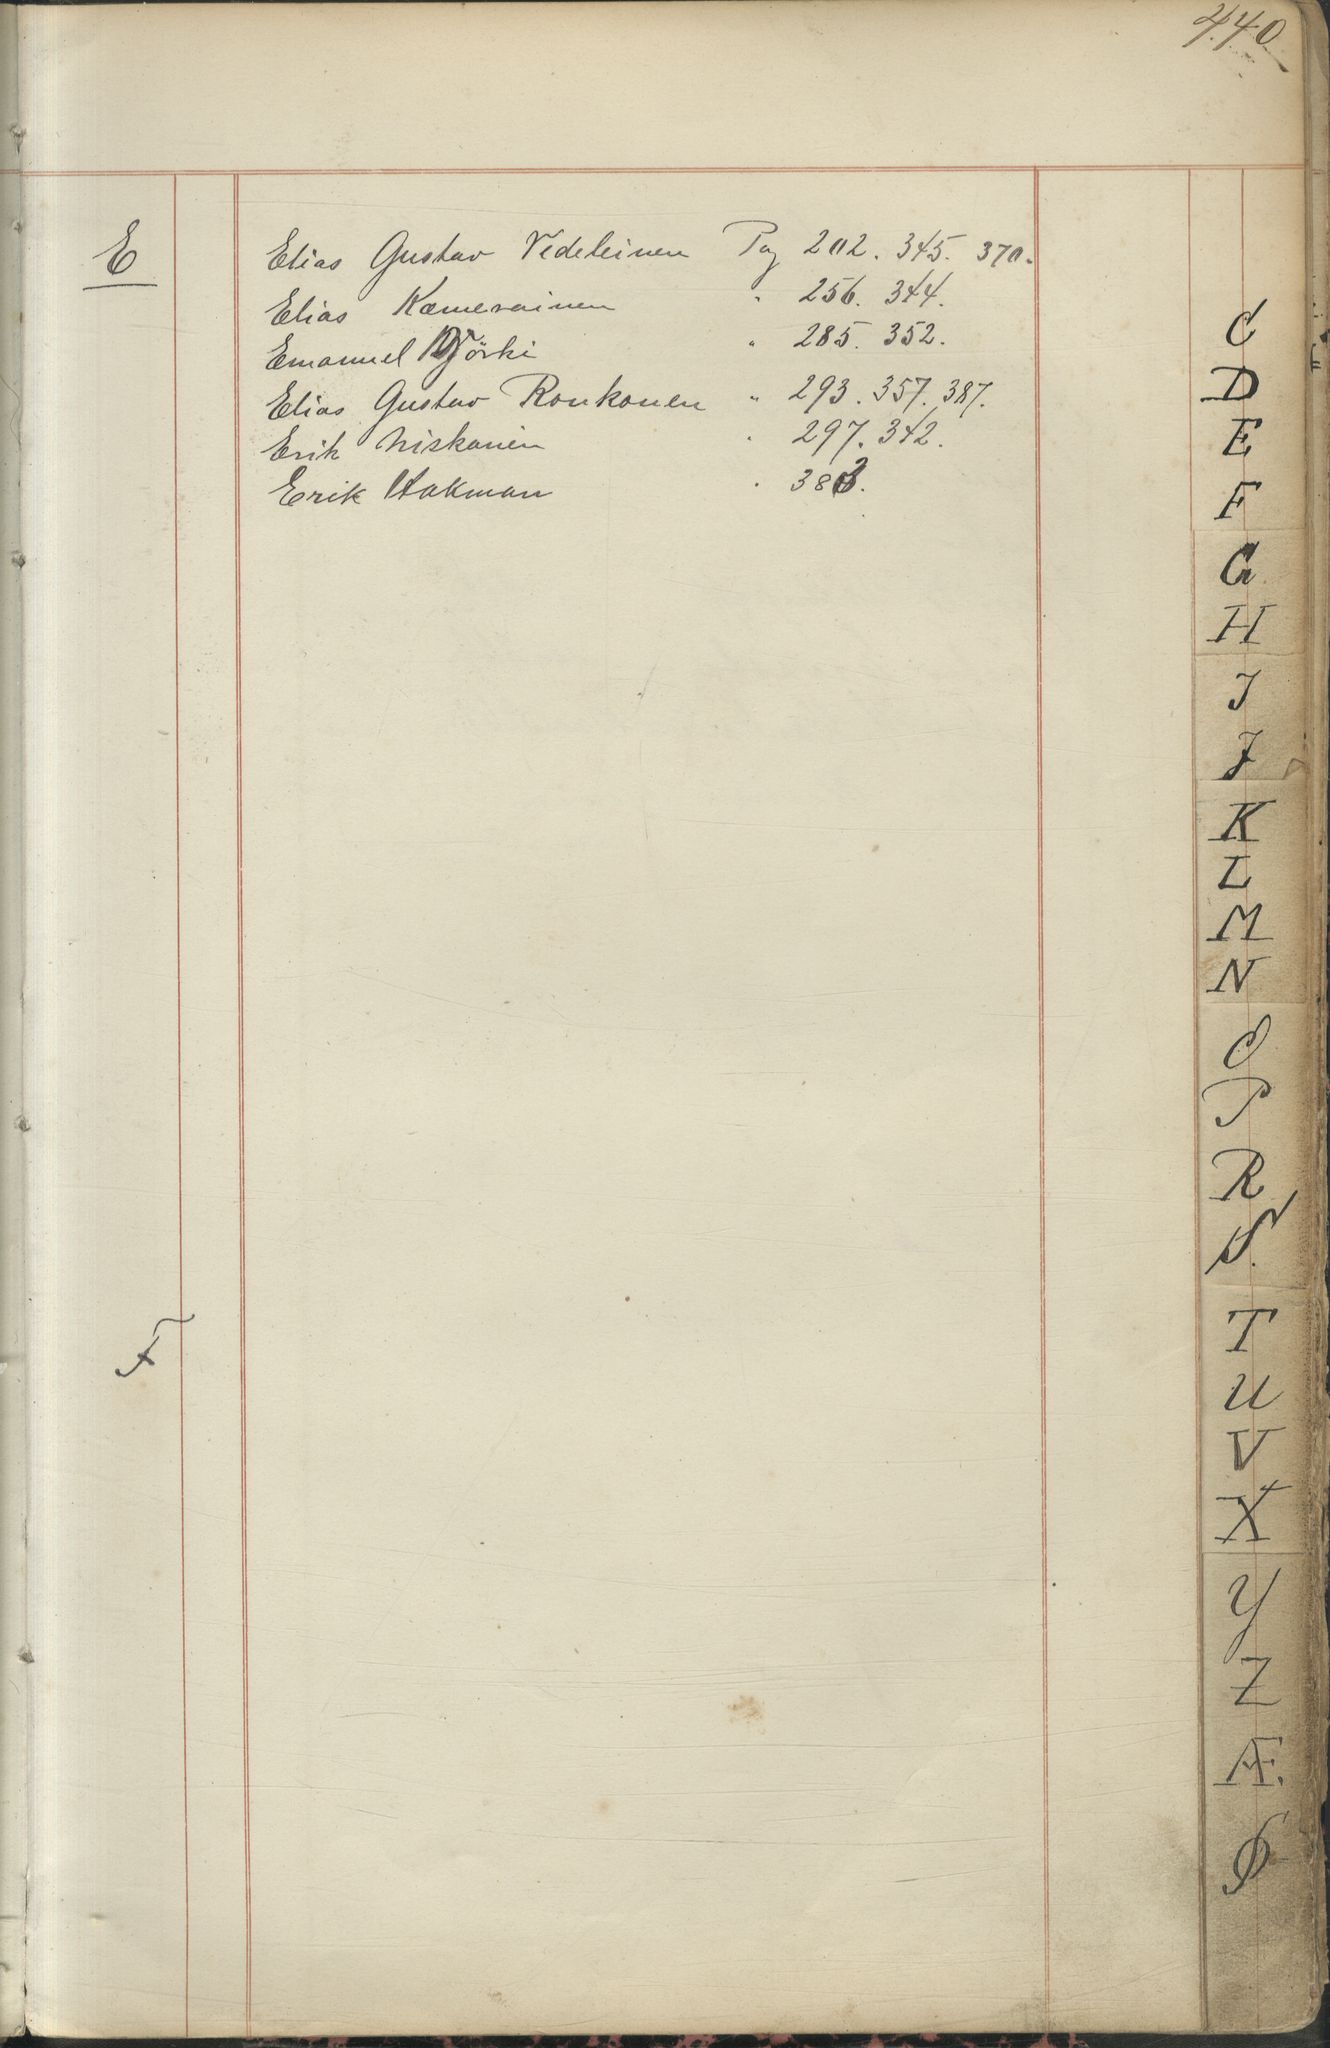 440
E
Elias Gustav Videleinen Pag 202. 345. 370.
Elias Kæmerainen " 256. 344.
Emanuel " 285. 352.
Elias Gustav Ronkonen " 293. 357. 387.
Erik Niskanen " 297. 342.
Erik Hakman "
F
C
D
E
F
G
H
I
J
K
L
M
N
O
P
R
S.
T
U
V
X
Y
Z
Æ.
Ø